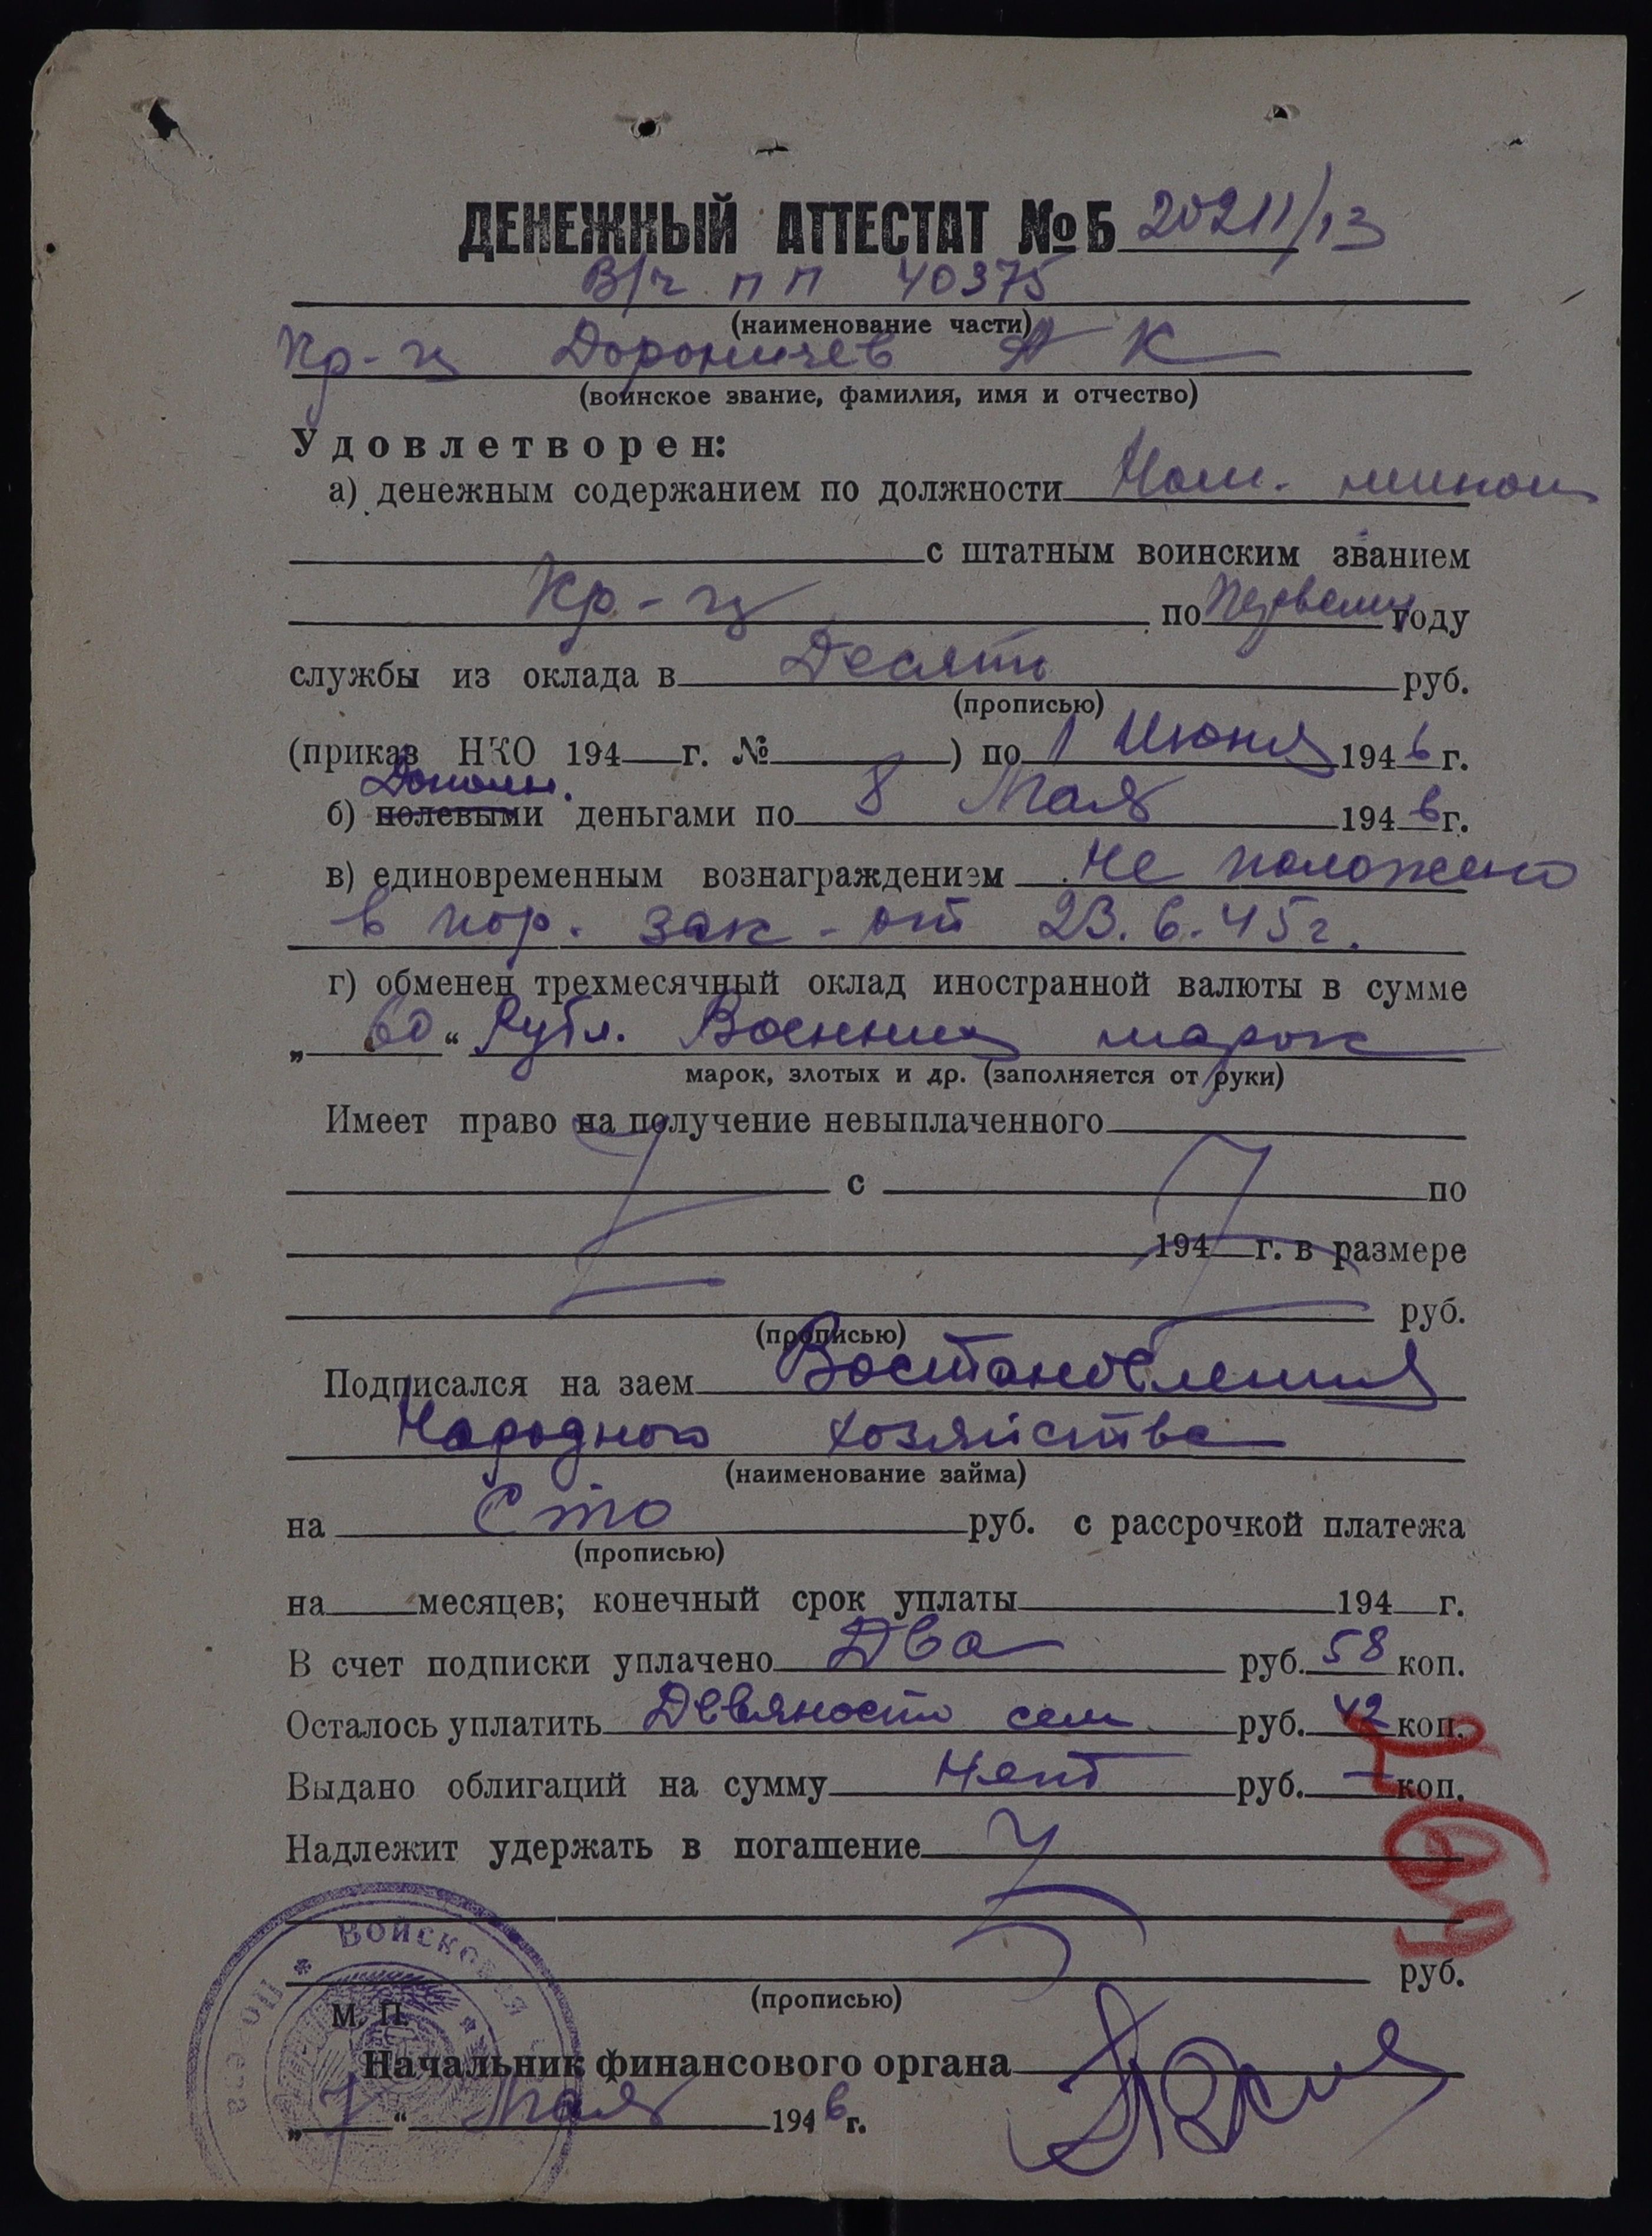 ДЕНЕЖНЫЙ АТТЕСТАТ №Б 20211/13
В/ч пп 40375
(наименование части)
Кр-ц Дороничев А К
(воинское звание, фамилия, имя и отчество)
Удовлетворен:
а) денежным содержанием по должности Ком.
с штатным воинским званием
Кр-ц по первому году
службы из оклада в Десять руб.
(прописью)
(приказ НКО 194 г. № ) по 1 Июня 1946 г.
Дополн.
б) полевыми деньгами по 8 Мая 1946 г.
в) единовременным вознаграждением не положено
в пор. зак-от 23.6.45г.
г) обменен трехмесячный оклад иностранной валюты в сумме
„ 60 “ Рубл. Военных марок
марок, злотых и др. (заполняется от руки)
Имеет право на получение невыплаченного
с по
194 г. в размере
руб.
(прописью)
Подписался на заем Востановления
Народного хозяйства
(наименование займа)
на Сто руб. с рассрочкой платежа
(прописью)
на месяцев; конечный срок уплаты 194 г.
В счет подписки уплачено Два руб. 58 коп.
Осталось уплатить Девяносто сем руб. 42 коп.
Выдано облигаций на сумму Нет руб. — коп.
Надлежит удержать в погашение
руб.
(прописью)
М. П.
Войсковая Полевая
Начальник финансового органа
„ 7 “ Мая 1946 г.